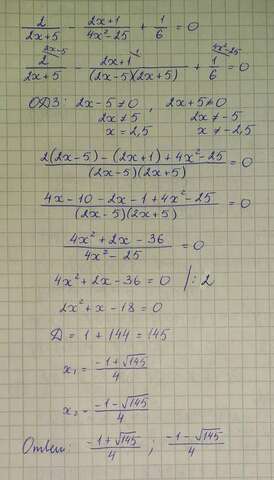 2/(2x+5) - (2x+1)/(4x²-25) + 1/6 = 0
2/(2x+5) ^(2x-5) - (2x+1)/((2x-5)(2x+5)) ^1 + 1/6 ^(4x²-25) = 0
ОДЗ: 2x-5≠0, 2x+5≠0
2x≠5 2x≠-5
x=2,5 x≠-2,5
(2(2x-5)-(2x+1)+4x²-25)/((2x-5)(2x+5)) = 0
(4x-10-2x-1+4x²-25)/((2x-5)(2x+5)) = 0
(4x²+2x-36)/(4x²-25) = 0
4x²+2x-36=0 /:2
2x²+x-18=0
D = 1+144=145
x₁ = (-1+√145)/4
x₂ = (-1-√145)/4
Ответ: (-1+√145)/4 ; (-1-√145)/4